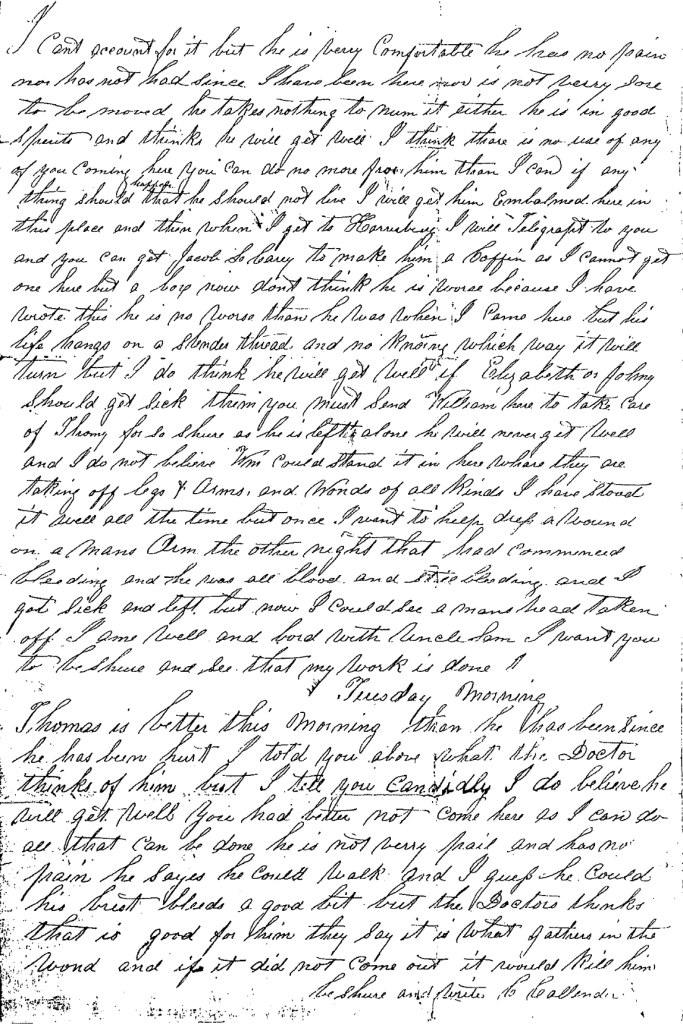 I Cant account for it but he is verry Comfortable he has no pain
nor has not had since I have been here nor is not verry sore
to be moved he takes nothing to num it either he is in good
spirits and thinks he will get well I think thare is no use of any
of you coming here you can do no more for him than I can if any
thing should happen that he should not live I will get him Embalmed here in
this place and then when I get to Harrisburg I will Telegrapt to you
and you can get Jacob to make him a Coffin as I cannot get
one here but a box now dont think he is worse because I have
wrote this he is no worse than he was when I came here but his
life hangs on a slender thread and no knoing which way it will
turn but I do think he will get well if Elizabeth or Johny
should get sick then you must send William here to take care
of Thomy for so shure as he is left alone he will never get well
and I do not believe Wm could stand it in here whare they are
taking off legs & arms, and wonds of all kinds I have stood
it well all the time but once I went to help dress a wound
on a mans arm the other night that had commenced
bleeding and he was all blood and still bleeding and I
got sick and left but now I could see a mans head taken
off I ame well and bord with Uncle Sam I want you
to be shure and see that my work is done
Tuesday Morning
Thomas is better this Morning than he has been since
he has been hurt I told you above what the Doctor
thinks of him but I tell you candidly I do believe he
will get well you had better not come here as I can do
all that can be done he is not verry pail and has no
pain he sayes he could walk and I guess he could
his brest bleeds a good bit but the Doctors thinks
that is good for him they say it is what gathers in the
wond and if it did not come out it would kill him
be shure and write to Callender